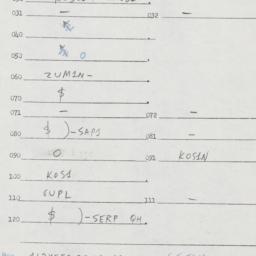 031 — 032 —
040
050 0
060 ZUMIN-
070 $
071 — 072 —
080 $ )-SAPI 081 —
090 0 091 KOSIN
100 KOSI
110 GUPL 111 —
120 $ )-SERP QH.